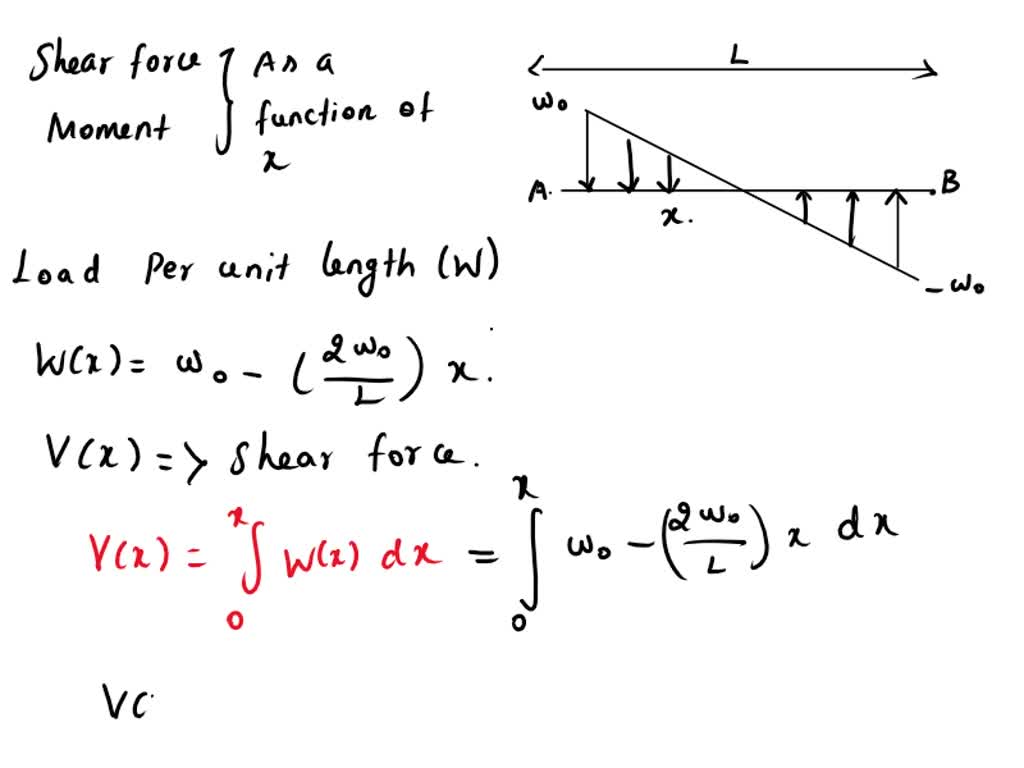 Shear force } As a
Moment function of
x
L
w₀
A. B
x.
-w₀
Load Per unit length (W)
W(x) = w₀ - (2w₀/L) x.
V(x) => shear force.
V(x) = ∫₀ˣ W(x) dx = ∫₀ˣ w₀ - (2w₀/L) x dx
V(